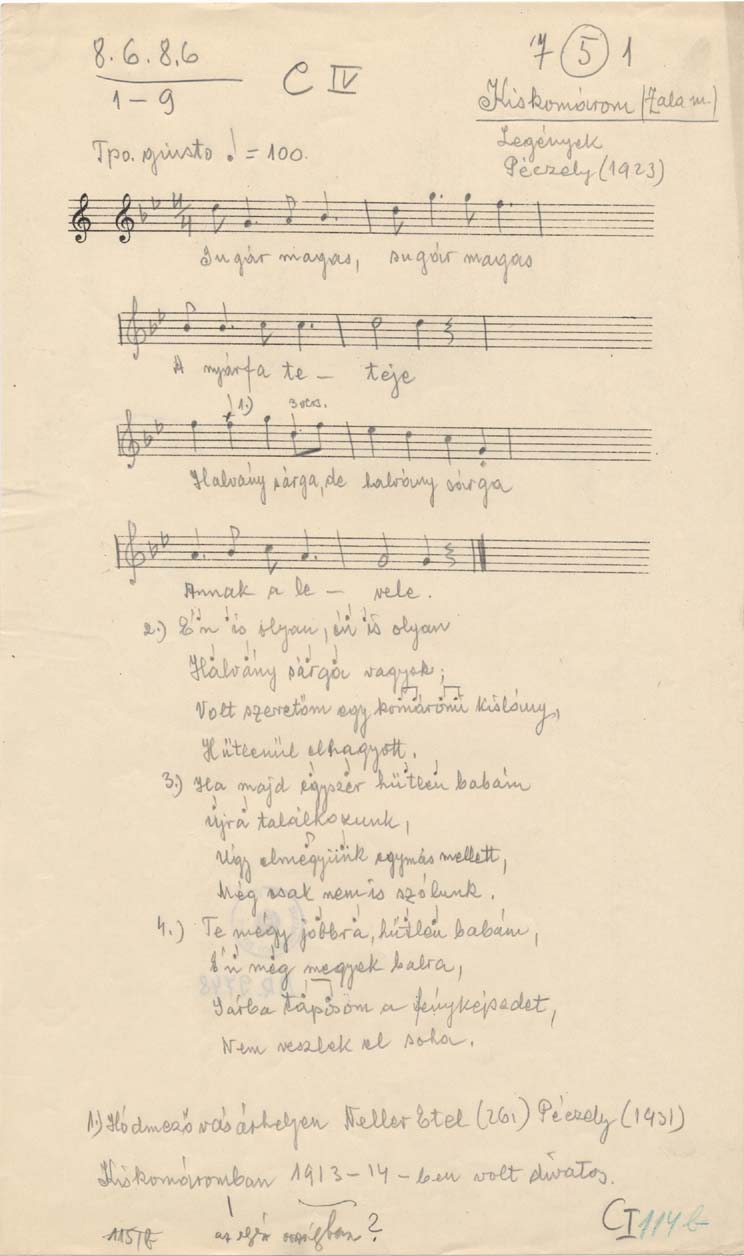 8.6.8.6
1-9
C IV
7 5 1
Kiskomárom (Zala m.)
Legények
Péczely (1923)
Tpo. giusto = 100.
4/4
Sugár magas, sugár magas
A nyárfa te- teje
1.) 3 vers.
Halvány sárga, de halvány sárga
Annak a le- vele.
2.) Én is olyan, én is olyan
Halvány sárga vagyok;
Volt szeretőm egy komáromi kislány,
Hűtlenül elhagyott.
3.) Ha majd égyszér hűtlen babám
Újra találkozunk,
Úgy elmégyünk egymás mellett,
Még csak nem is szólunk.
4.) Te mégy jobbra, hűtlen babám,
Én még megyek balra,
Sárba tapisom a fényképedet,
Nem veszlek el soha.
1.) Hódmezővásárhelyen Neller Etel (26i) Péczely (1931)
Kiskomáromban 1913-14-ben volt divatos.
az egész országban?
CI 114b